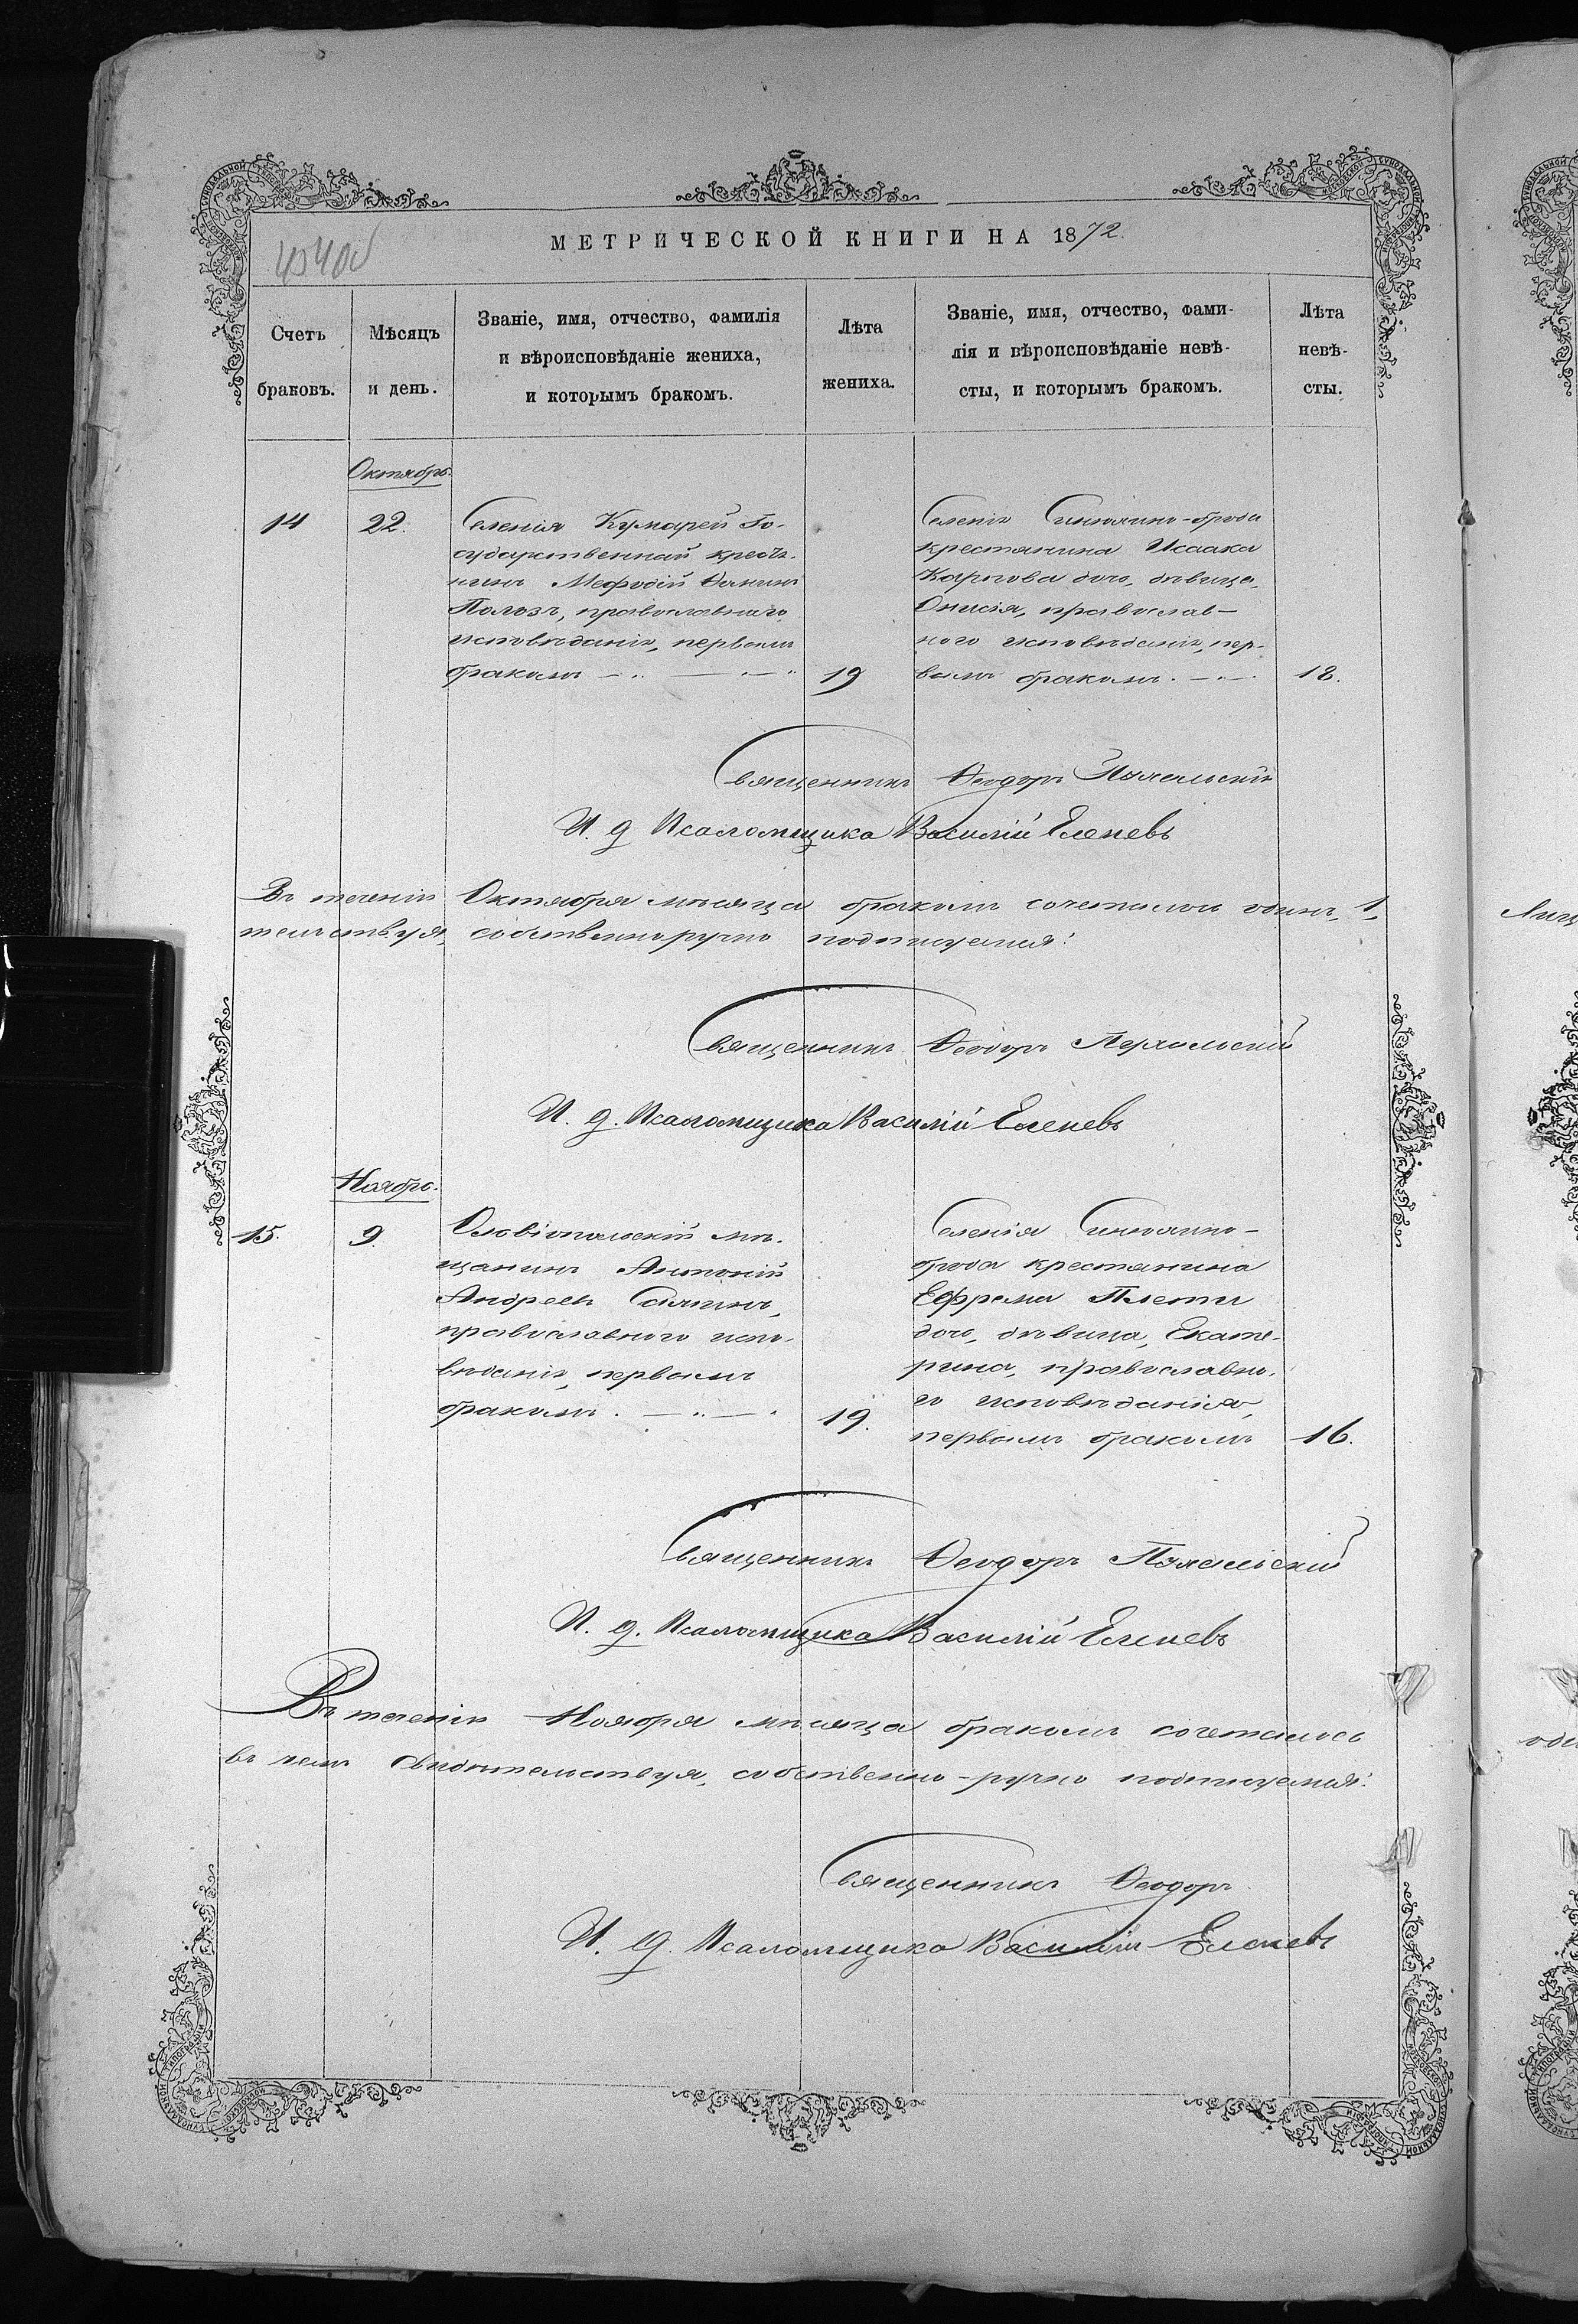 МЕТРИЧЕСКОЙ КНИГИ НА 1872.
Счетъ браковъ.
Мѣсяцъ и день.
Званіе, имя, отчество, фамилія
и вѣроисповѣданіе жениха,
и которымъ бракомъ.
Лѣта жениха.
Званіе, имя, отчество, фами-
лія и вѣроисповѣданіе невѣ-
сты, и которымъ бракомъ.
Лѣта невѣ-
сты.
Октябрь.
14
22.
Селенія Кумарей Го-
сударственный крестья-
нинъ Мефодій
Полозъ, православнаго
исповѣданія, первымъ
бракомъ
19
Селенія Синюхино-брода
крестянина Исаака
дочь, дѣвица,
Онисія, православ-
ного исповѣданія, пер-
вымъ бракомъ.
18.
Священникъ Ѳеодоръ
И. д Псаломщика Василій Еленевъ
Въ теченіи Октября мѣсяца бракомъ сочетались одинъ, 1,
тельствуя, собственноручно подписуемся:
Священникъ Ѳеодоръ
И. д. Псаломщика Василій Еленевъ
Ноябрь.
15.
9.
Ольвіопольскій мѣ-
щанинъ Антоній
Андреевъ
православного испо-
вѣданія, первымъ
бракомъ.
19.
Селенія Синюхино-
брода крестянина
Ефрема
дочь, дѣвица, Екате-
рина, православно-
го исповѣданія,
первымъ бракомъ
16.
Священникъ Ѳеодоръ
И. д. Псаломщика Василій Еленевъ
Въ теченіи Ноября мѣсяца бракомъ сочеталось
въ чемъ свидѣтельствуя, собственно-ручно подписуемся:
Священникъ Ѳеодоръ
И. д. Псаломщика Василій Еленевъ